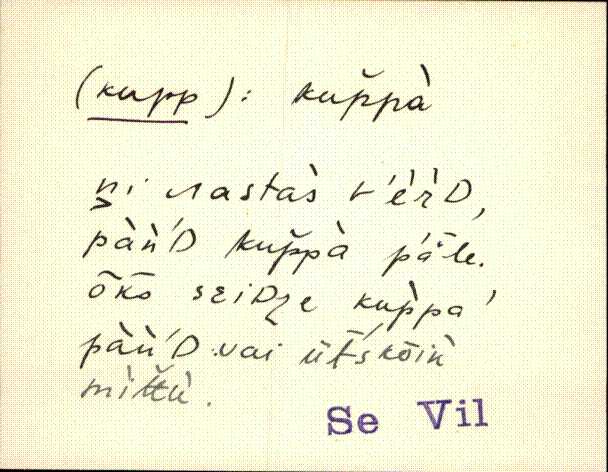 (kupp): kup̆pà
ni lastàs v́èr̀D,
pàǹ'D kup̆pà pä̀le.
ōkō seiDze kuppa'
pàǹ'D vai üt́skōiǹ
mìttù.
Se Vil